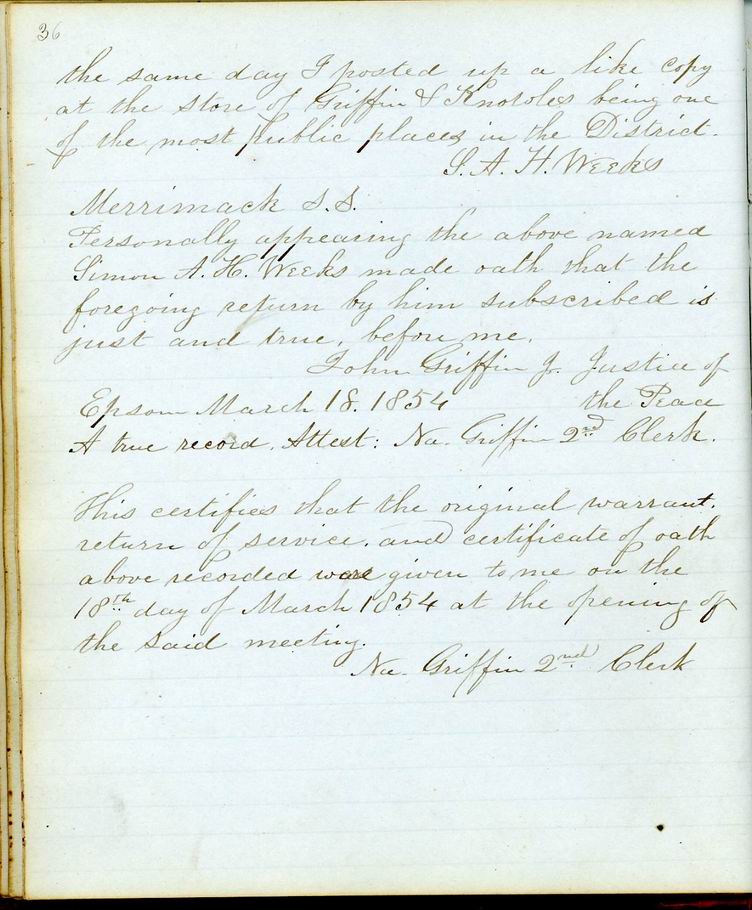 36
the same day I posted up a like copy
at the store of Griffin & Knowles being one
of the most public places in the District.
S. A. H. Weeks
Merrimack S.S.
Personally appearing the above named
Simon A. H. Weeks made oath that the
foregoing return by him subscribed is
just and true, before me,
John Griffin Jr. Justice of
Epsom March 18. 1854 the Peace
A true record. Attest: Na. Griffin 2nd Clerk.
This certifies that the original warrant,
return of service, and certificate of oath
above recorded were given to me on the
18th day of March 1854 at the opening of
the said meeting.
Na. Griffin 2nd Clerk